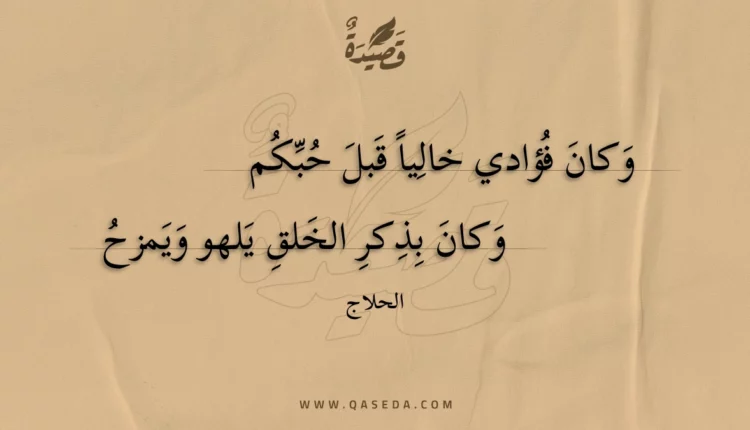 قَصِيدَةٌ
وَكانَ فُؤادي خالِياً قَبلَ حُبِّكُم
وَكانَ بِذِكرِ الخَلقِ يَلهو وَيَمزحُ
الحلاج
WWW.QASEDA.COM